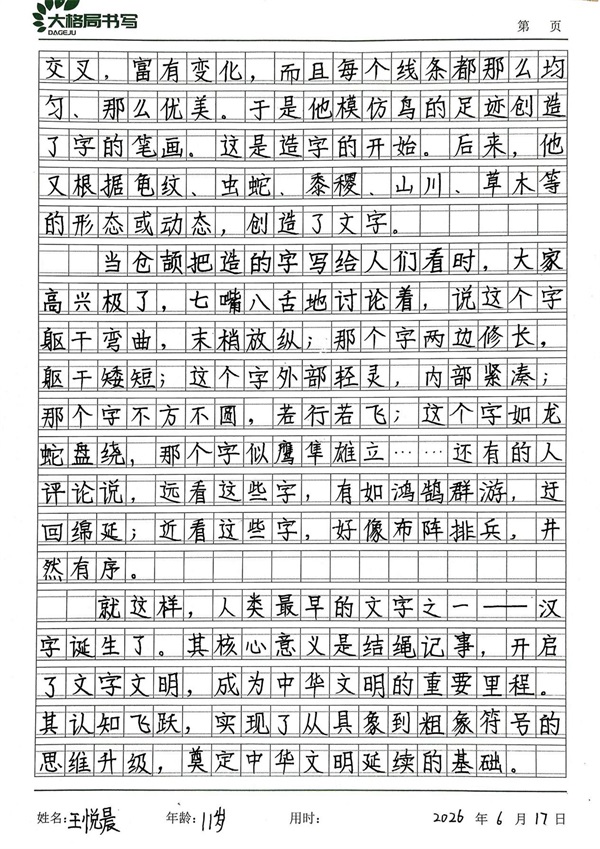 大格局书写
DAGEJU
第 页
交叉，富有变化，而且每个线条都那么均
匀、那么优美。于是他模仿鸟的足迹创造
了字的笔画。这是造字的开始。后来，他
又根据龟纹、虫蛇、黍稷、山川、草木等
的形态或动态，创造了文字。
当仓颉把造的字写给人们看时，大家
高兴极了，七嘴八舌地讨论着，说这个字
躯干弯曲，末梢放纵；那个字两边修长，
躯干矮短；这个字外部轻灵，内部紧凑；
那个字不方不圆，若行若飞；这个字如龙
蛇盘绕，那个字似鹰隼雄立……还有的人
评论说，远看这些字，有如鸿鹄群游，迂
回绵延；近看这些字，好像布阵排兵，井
然有序。
就这样，人类最早的文字之一——汉
字诞生了。其核心意义是结绳记事，开启
了文字文明，成为中华文明的重要里程。
其认知飞跃，实现了从具象到粗象符号的
思维升级，奠定中华文明延续的基础。
姓名：王悦晨 年龄：11岁 用时： 2026 年 6 月 17 日